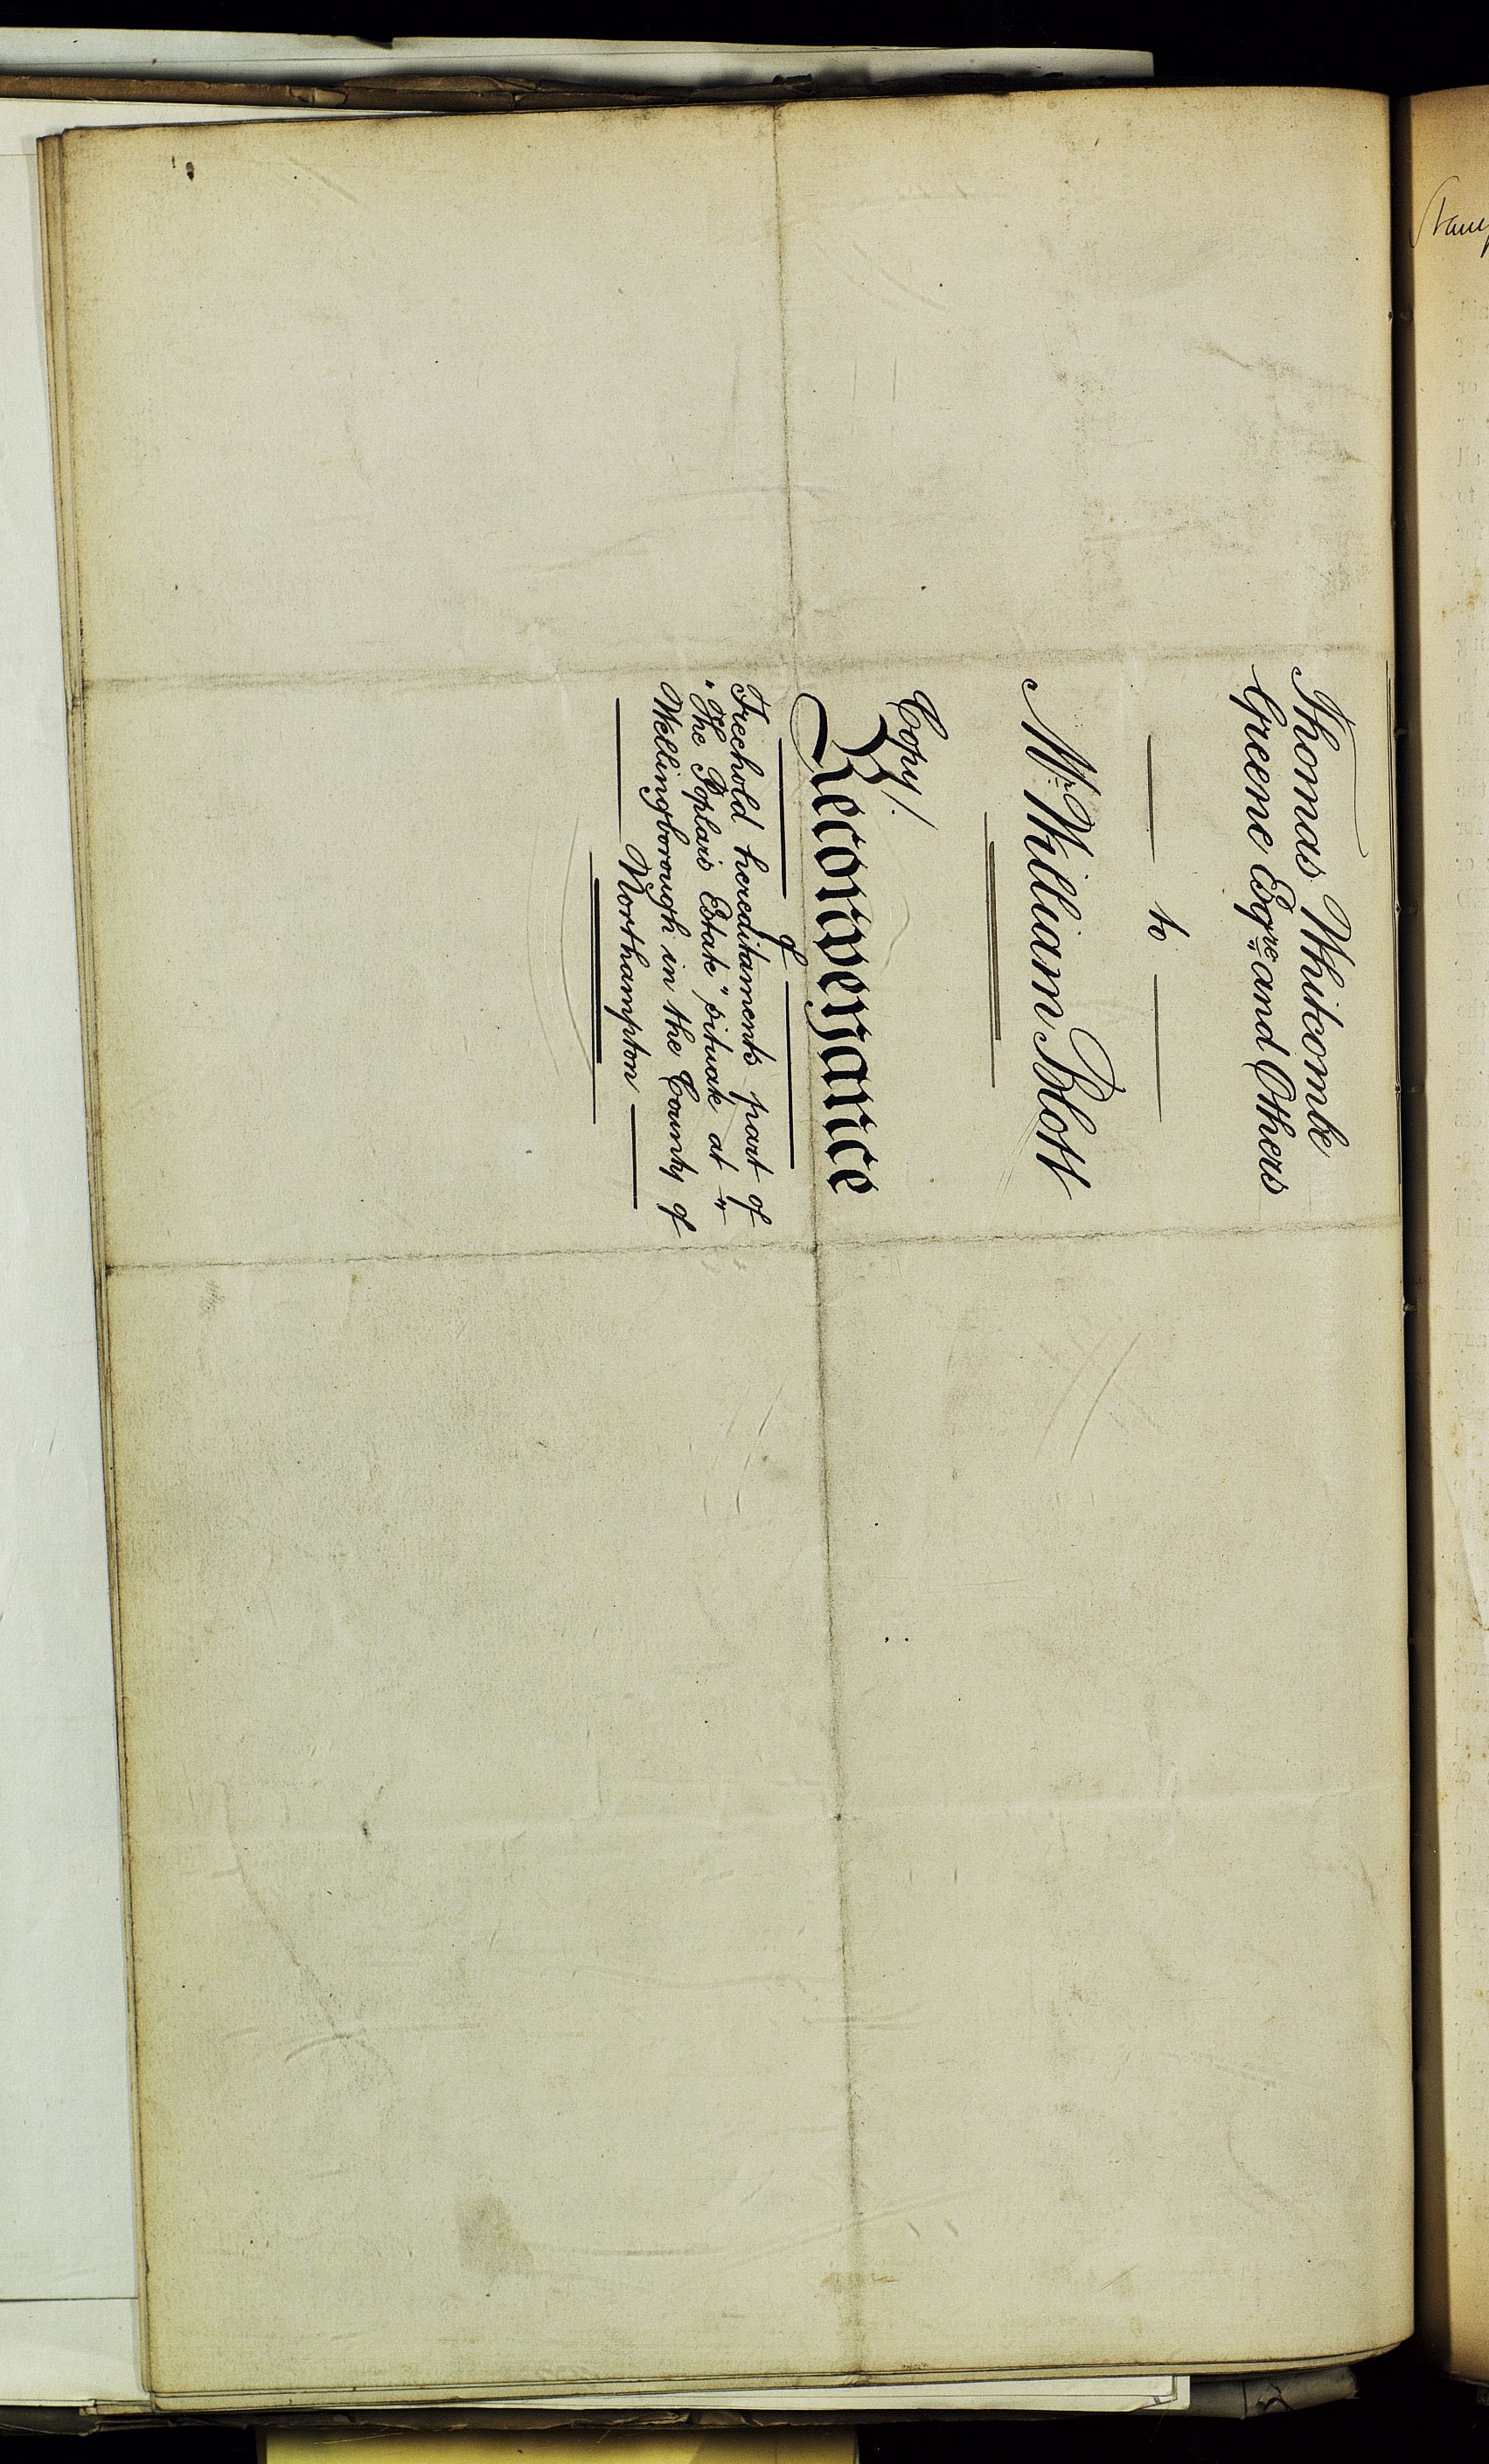 Thomas Whitcombe
Greene Esqre and Others
to
Mr. William Blott
Copy/.
Reconveyance
of
Freehold hereditaments part of
"The Poplars Estate" situate at "
Wellingborough in the County of
Northampton